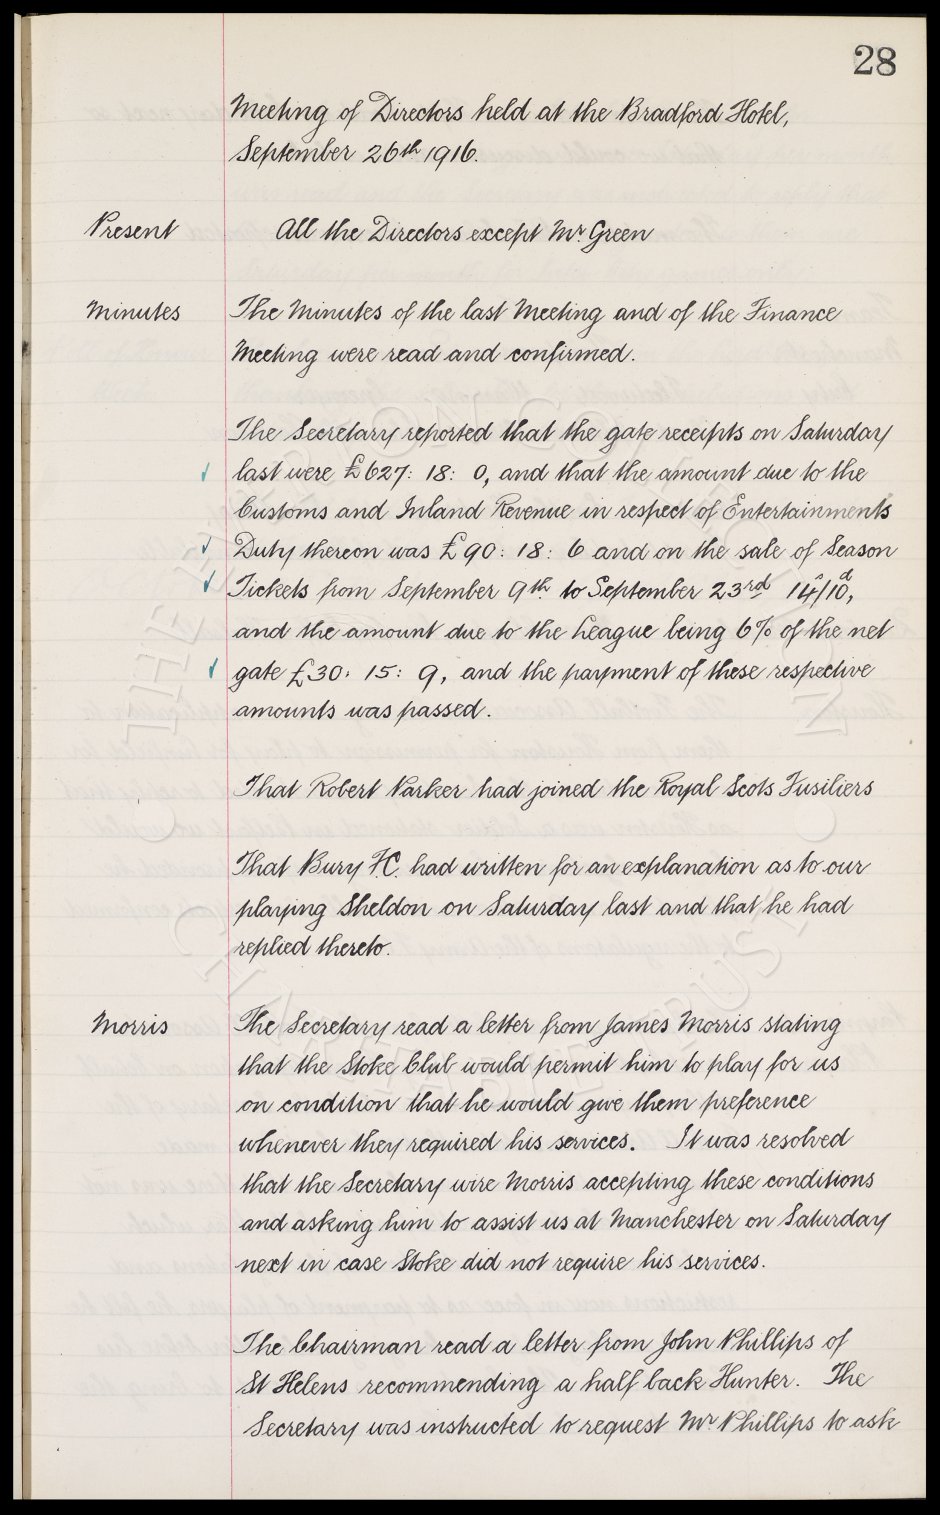 28
Meeting of Directors held at the Bradford Hotel,
September 26th 1916.
Present All the Directors except Mr. Green
Minutes The Minutes of the last Meeting and of the Finance
Meeting were read and confirmed.
The Secretary reported that the gate receipts on Saturday
last were £627: 18: 0, and that the amount due to the
Customs and Inland Revenue in respect of Entertainments
Duty thereon was £90: 18: 6 and on the sale of Season
Tickets from September 9th to September 23rd 14s/10d,
and the amount due to the League being 6% of the net
gate £30: 15: 9, and the payment of these respective
amounts was passed.
That Robert Parker had joined the Royal Scots Fusiliers
That Bury F.C. had written for an explanation as to our
playing Sheldon on Saturday last and that he had
replied thereto.
Morris The Secretary read a letter from James Morris stating
that the Stoke Club would permit him to play for us
on condition that he would give them preference
whenever they required his services. It was resolved
that the Secretary wire Morris accepting these conditions
and asking him to assist us at Manchester on Saturday
next in case Stoke did not require his services.
The Chairman read a letter from John Phillips of
St Helens recommending a half back Hunter. The
Secretary was instructed to request Mr. Phillips to ask